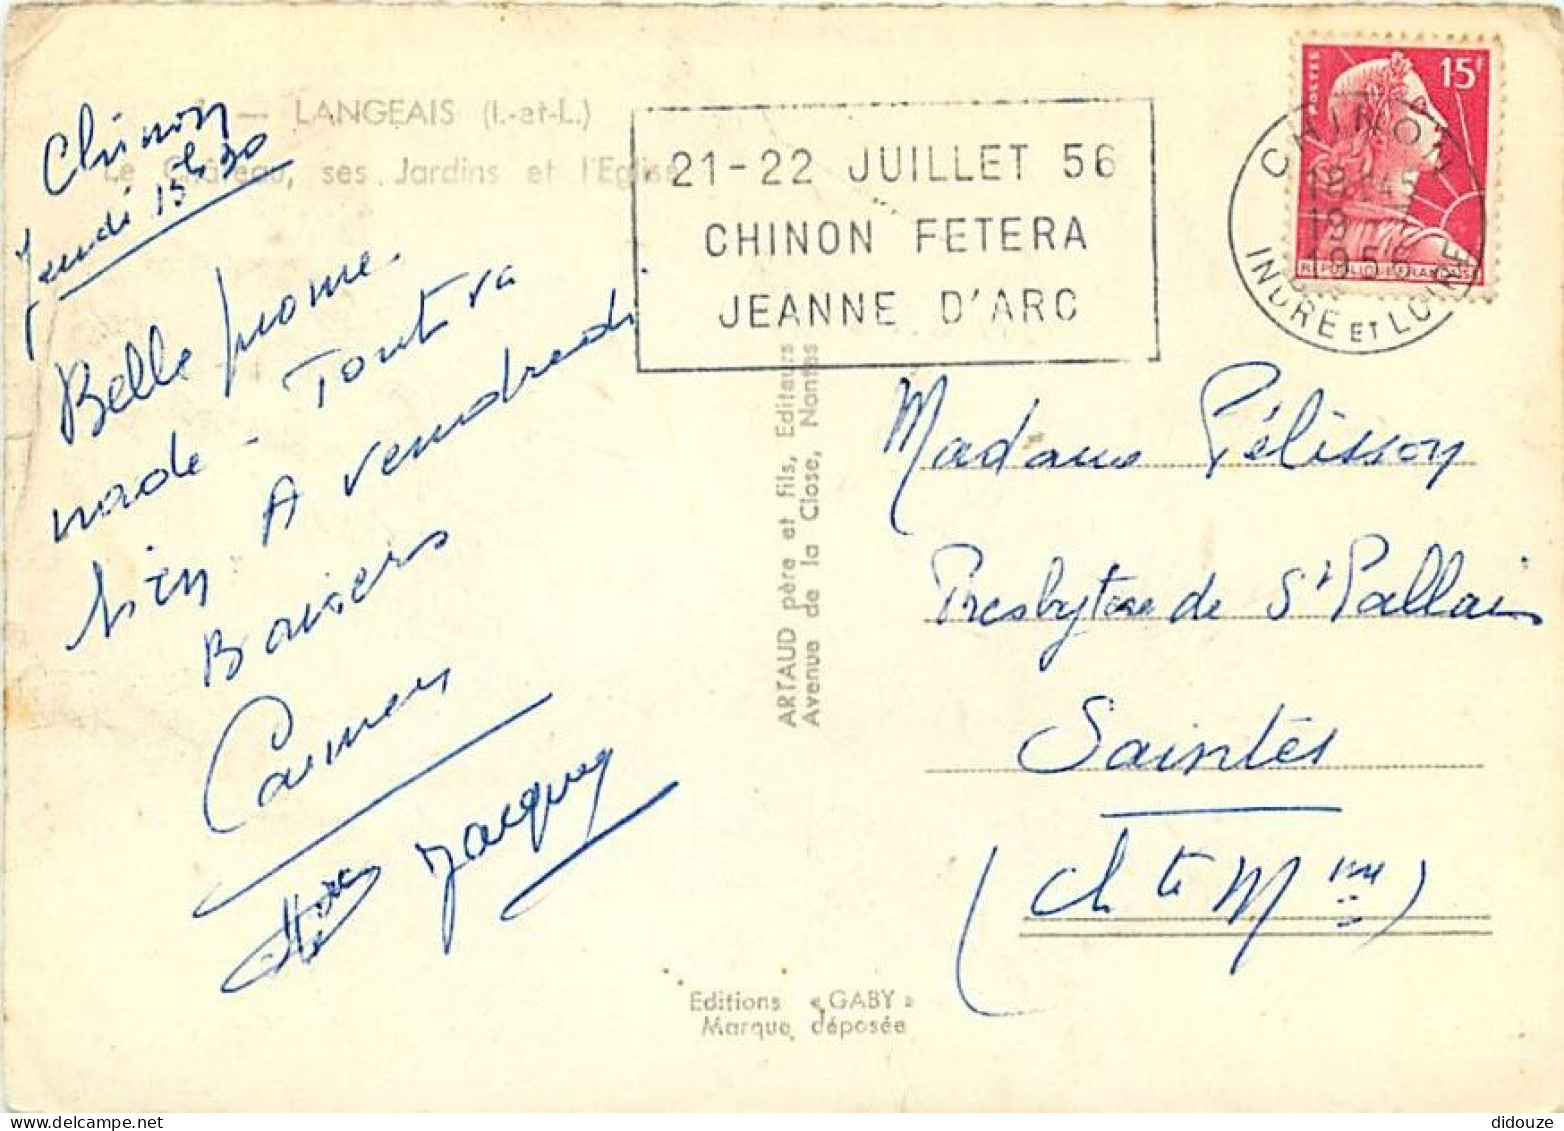 — LANGEAIS (I.-et-L.)
Le Château, ses Jardins et l'Eglise
Chinon
Jeudi 15h30
Belle prome-
nade - Tout va
bien A vendredi
Baisers
Carmen
Jacques
21-22 JUILLET 56
CHINON FETERA
JEANNE D'ARC
POSTES
15F
REPUBLIQUE FRANÇAISE
CHINON
18H45
19
1956
INDRE ET LOIRE
ARTAUD père et fils, Editeurs
Avenue de la Close, Nantes
Madame Pélisson
Presbytère de St Pallais
Saintes
(Chte Mme)
Editions «GABY»
Marque déposée
didouze